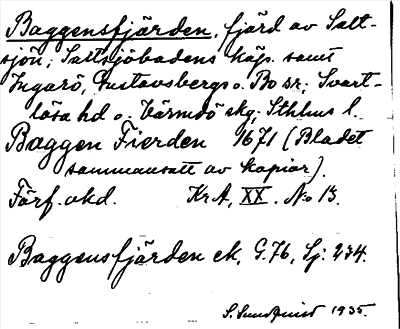 Baggensfjärden, fjärd av Salt-
sjön; Saltsjöbadens köp. samt
Ingarö, Gustavsbergs o. Bo sr; Svart-
lösa hd o. Värmdö skg; Sthlms l.
Baggen Fierden 1671 (Bladet
sammansatt av kopior).
Förf. okd. KrA, XX. No 13.
Baggensfjärden ek, G.76, Sj: 234.
S. Sundquist 1935.